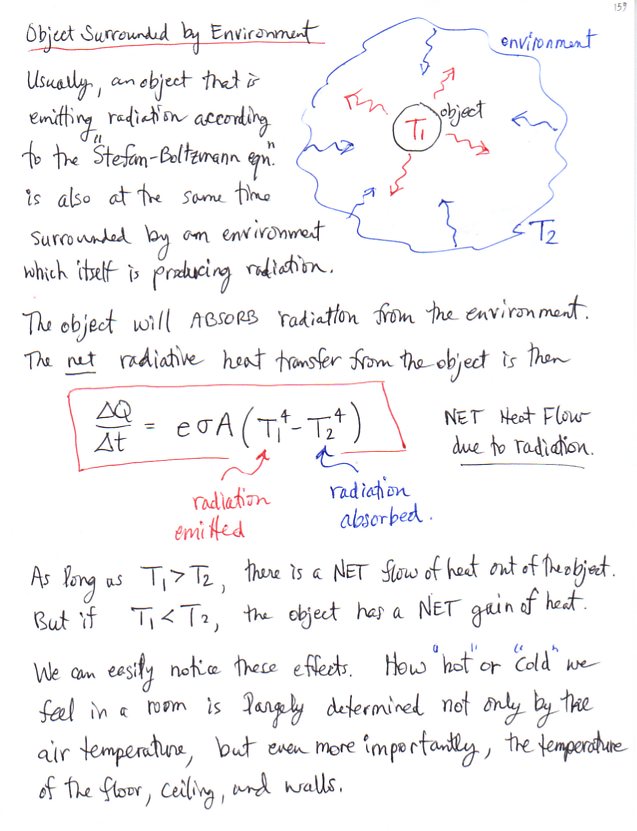 159
Object Surrounded by Environment
Usually, an object that is
emitting radiation according
to the "Stefan-Boltzmann eqn."
is also at the same time
surrounded by an environment
which itself is producing radiation.
environment
object
T₁
T₂
The object will ABSORB radiation from the environment.
The net radiative heat transfer from the object is then
ΔQ/Δt = eσA(T₁⁴ - T₂⁴)
NET Heat Flow
due to radiation.
radiation
emitted
radiation
absorbed.
As long as T₁ > T₂, there is a NET flow of heat out of the object.
But if T₁ < T₂, the object has a NET gain of heat.
We can easily notice these effects. How "hot" or "cold" we
feel in a room is largely determined not only by the
air temperature, but even more importantly, the temperature
of the floor, ceiling, and walls.